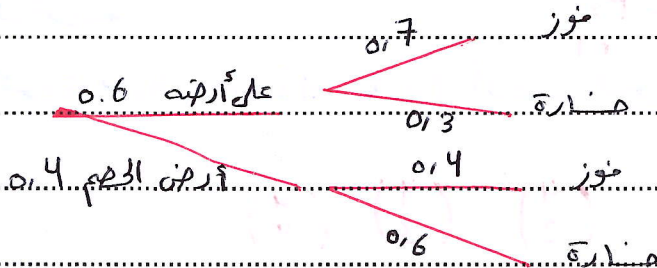 0,7 فوز
0.6 على أرضه
0,3 خسارة
0,4 أرض الخصم 0,4 فوز
0,6 خسارة